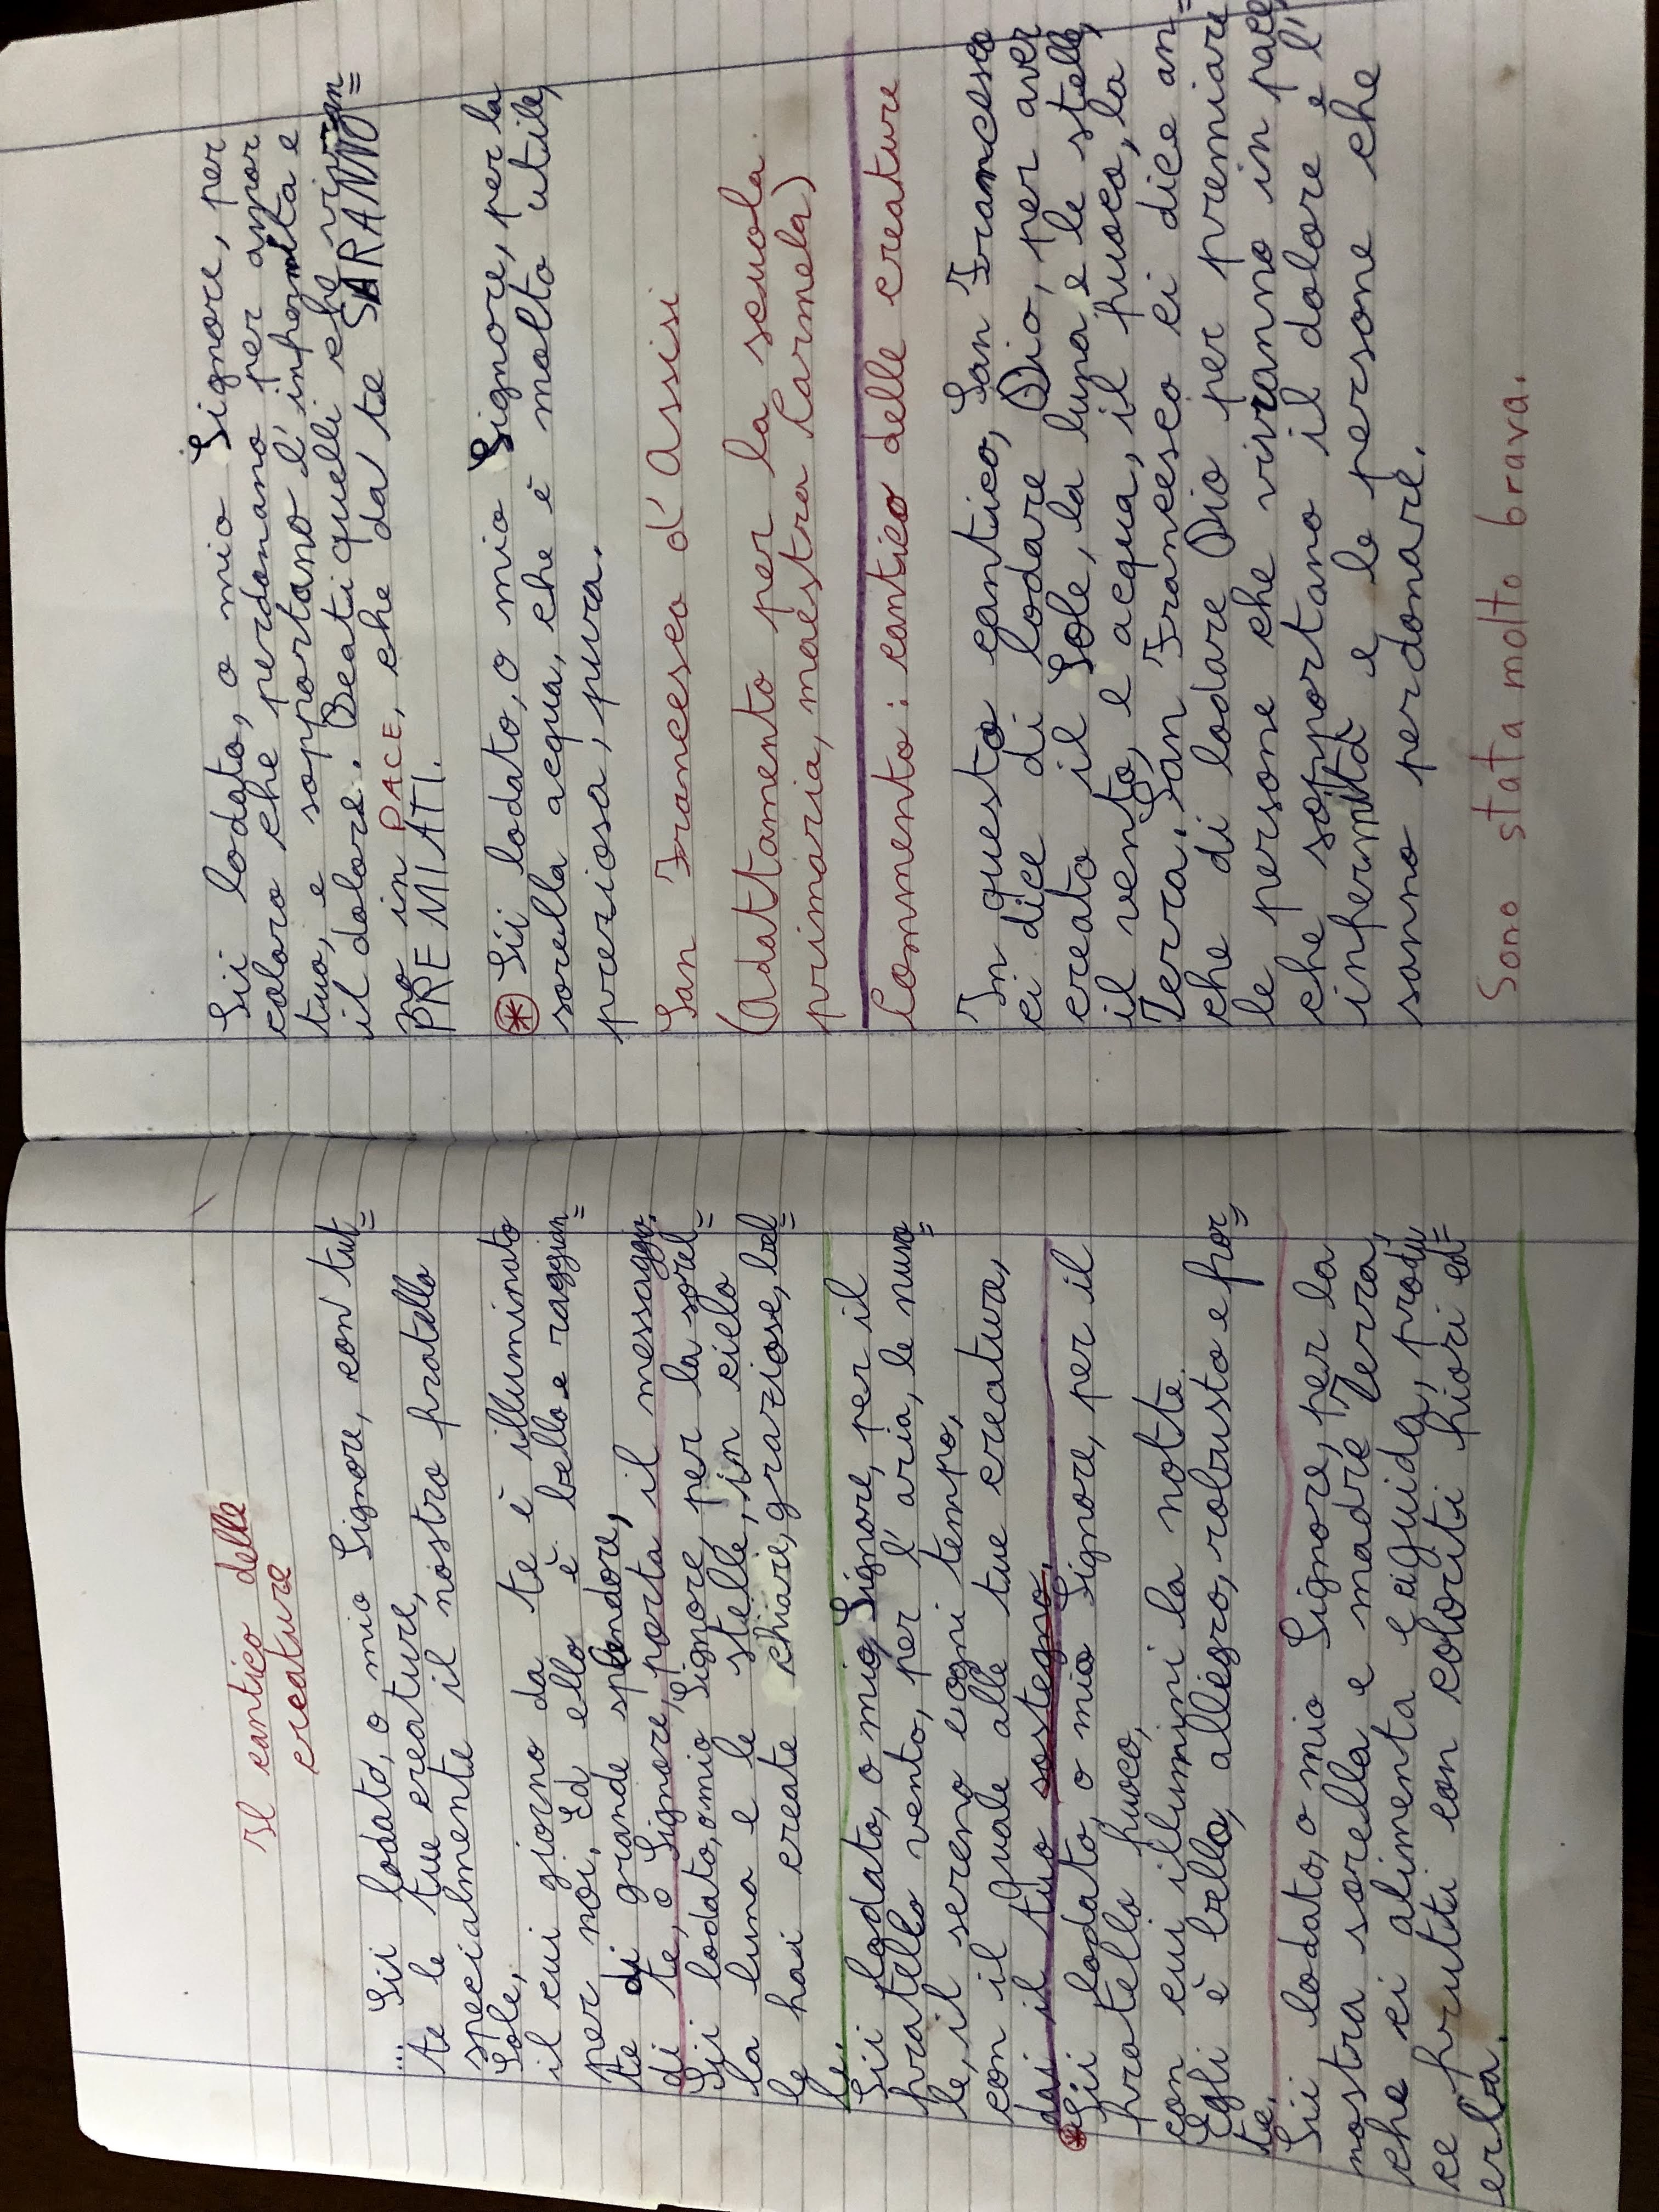 Il cantico delle
creature
... Sii lodato, o mio Signore, con tut=
te le tue creature,
specialmente il nostro fratello
Sole,
il cui giorno da te è illuminato
per noi. Ed ello è bello e raggian=
te di grande splendore,
di te, o Signore, porta il messaggio.
Sii lodato, o mio Signore, per la sorel=
la luna e le stelle, in cielo
le hai create chiare, graziose, bel=
le.
Sii lodato, o mio Signore, per il
fratello vento, per l'aria, le nuvo=
le, il sereno e ogni tempo,
con il quale alle tue creature,
dai il tuo sostegno.
* Sii lodato, o mio Signore, per il
fratello fuoco,
con cui illumini la notte.
Egli è bello, allegro, robusto e for=
te.
Sii lodato, o mio Signore, per la
nostra sorella e madre Terra,
che ci alimenta e ci guida, produ=
ce frutti con coloriti fiori ed=
erba.
Sii lodato, o mio Signore, per
coloro che perdonano per amor
tuo, e sopportano l'infermità e
il dolore. Beati quelli che vivran=
no in PACE, che da te SARANNO
PREMIATI.
* Sii lodato, o mio Signore, per la
sorella acqua, che è molto utile,
preziosa, pura.
San Francesco d'Assisi
(Adattamento per la scuola
primaria, maestra Carmela)
Commento: cantico delle creature
In questo cantico, San Francesco
ci dice di lodare Dio, per aver
creato il Sole, la luna e le stelle,
il vento, l'acqua, il fuoco, la
Terra. San Francesco ci dice an=
che di lodare Dio per premiare
le persone che vivranno in pace,
che sopportano il dolore e l'
infermità e le persone che
sanno perdonare.
Sono stata molto brava.